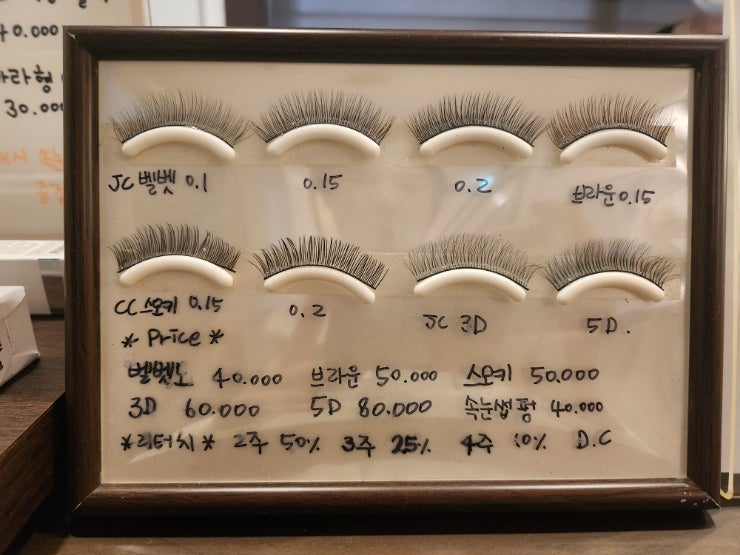 40.000
30.000
JC 벨벳 0.1 0.15 0.2 브라운 0.15
CC 스모키 0.15 0.2 JC 3D 5D.
* Price *
40.000 브라운 50.000 스모키 50.000
3D 60.000 5D 80.000 속눈썹 펌 40.000
*리터치* 2주 50% 3주 25% 4주 10% D.C